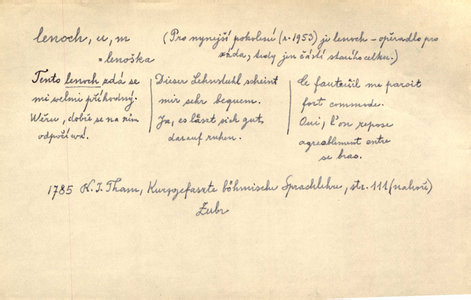 lenoch, u, m (Pro nynější pokolení (r. 1953) je lenoch - opěradlo pro
= lenoška záda, tedy jen částí starého celku.)
Tento lenoch zdá se
mi velmi příhodný.
Věru, dobře se na něm
odpočívá.
Dieser Lehnstuhl scheint
mir sehr bequem.
Ja, es lässt sich gut,
darauf ruhen.
Ce fauteüil me paroit
fort commode.
Oui, l'on repose
agreablement entre
se bras.
1785 K. I. Tham, Kurzgefasste böhmische Sprachlehre, str. 111 (nahoře)
Zubr